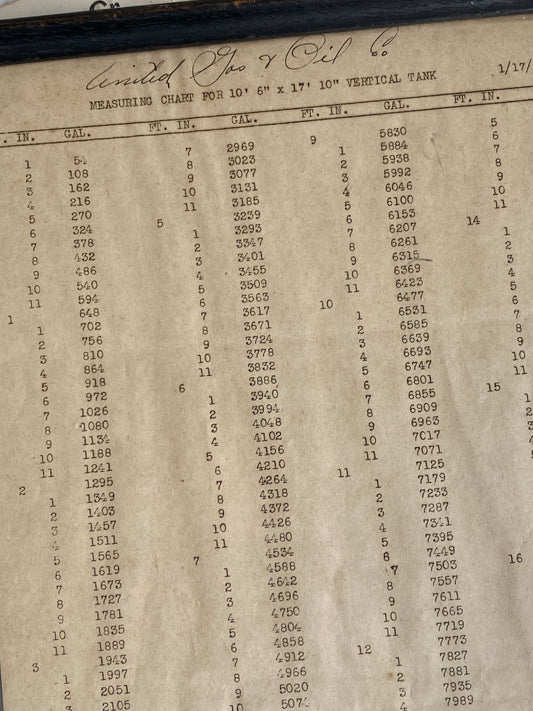 Cr
United Gas & Oil Co
MEASURING CHART FOR 10' 6" x 17' 10" VERTICAL TANK
1/17/
. IN. GAL.
1 54
2 108
3 162
4 216
5 270
6 324
7 378
8 432
9 486
10 540
11 594
1 648
1 702
2 756
3 810
4 864
5 918
6 972
7 1026
8 1080
9 1134
10 1188
11 1241
2 1295
1 1349
2 1403
3 1457
4 1511
5 1565
6 1619
7 1673
8 1727
9 1781
10 1835
11 1889
3 1943
1 1997
2 2051
3 2105
FT. IN. GAL.
7 2969
8 3023
9 3077
10 3131
11 3185
5 3239
1 3293
2 3347
3 3401
4 3455
5 3509
6 3563
7 3617
8 3671
9 3724
10 3778
11 3832
6 3886
1 3940
2 3994
3 4048
4 4102
5 4156
6 4210
7 4264
8 4318
9 4372
10 4426
11 4480
7 4534
1 4588
2 4642
3 4696
4 4750
5 4804
6 4858
7 4912
8 4966
9 5020
10 5074
FT. IN. GAL.
9 5830
1 5884
2 5938
3 5992
4 6046
5 6100
6 6153
7 6207
8 6261
9 6315
10 6369
11 6423
10 6477
1 6531
2 6585
3 6639
4 6693
5 6747
6 6801
7 6855
8 6909
9 6963
10 7017
11 7071
11 7125
1 7179
2 7233
3 7287
4 7341
5 7395
6 7449
7 7503
8 7557
9 7611
10 7665
11 7719
12 7773
1 7827
2 7881
3 7935
4 7989
FT. IN.
5
6
7
8
9
10
11
14
1
2
3
4
5
6
7
8
9
10
11
15
1
2
3
16